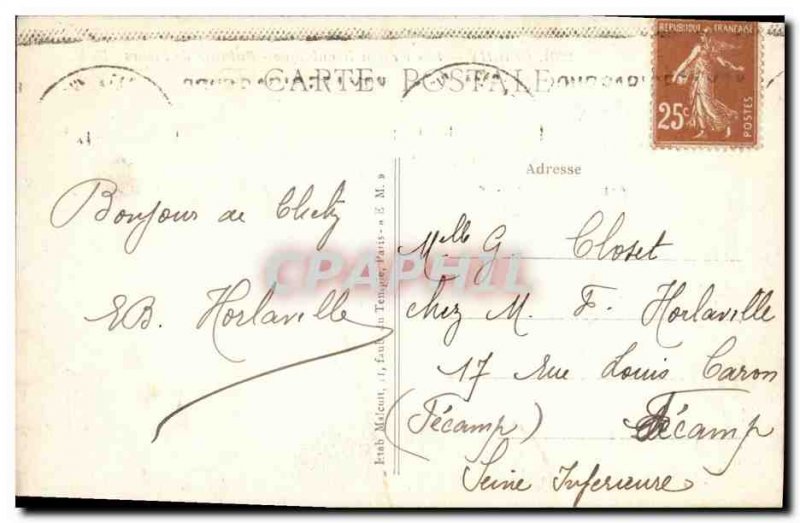 CARTE POSTALE
REPUBLIQUE FRANCAISE
25c
POSTES
Adresse
Bonjour de
EB. Horlaville
Melle G. Closet
chez M. F. Horlaville
17 rue Louis Caron
(Fécamp) Fécamp
Seine Inférieure
Etab Malcuit, faub du Temple, Paris
E M.
CPAPHIL